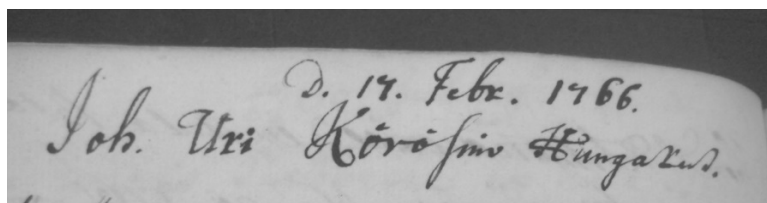 D. 17. Febr. 1766.
Joh. Uri Körösino Hungarus.